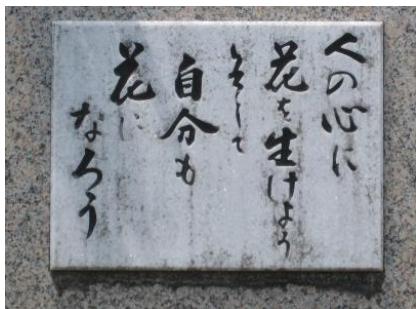 人の心に
花を生けよう
そして
自分も
花に
なろう